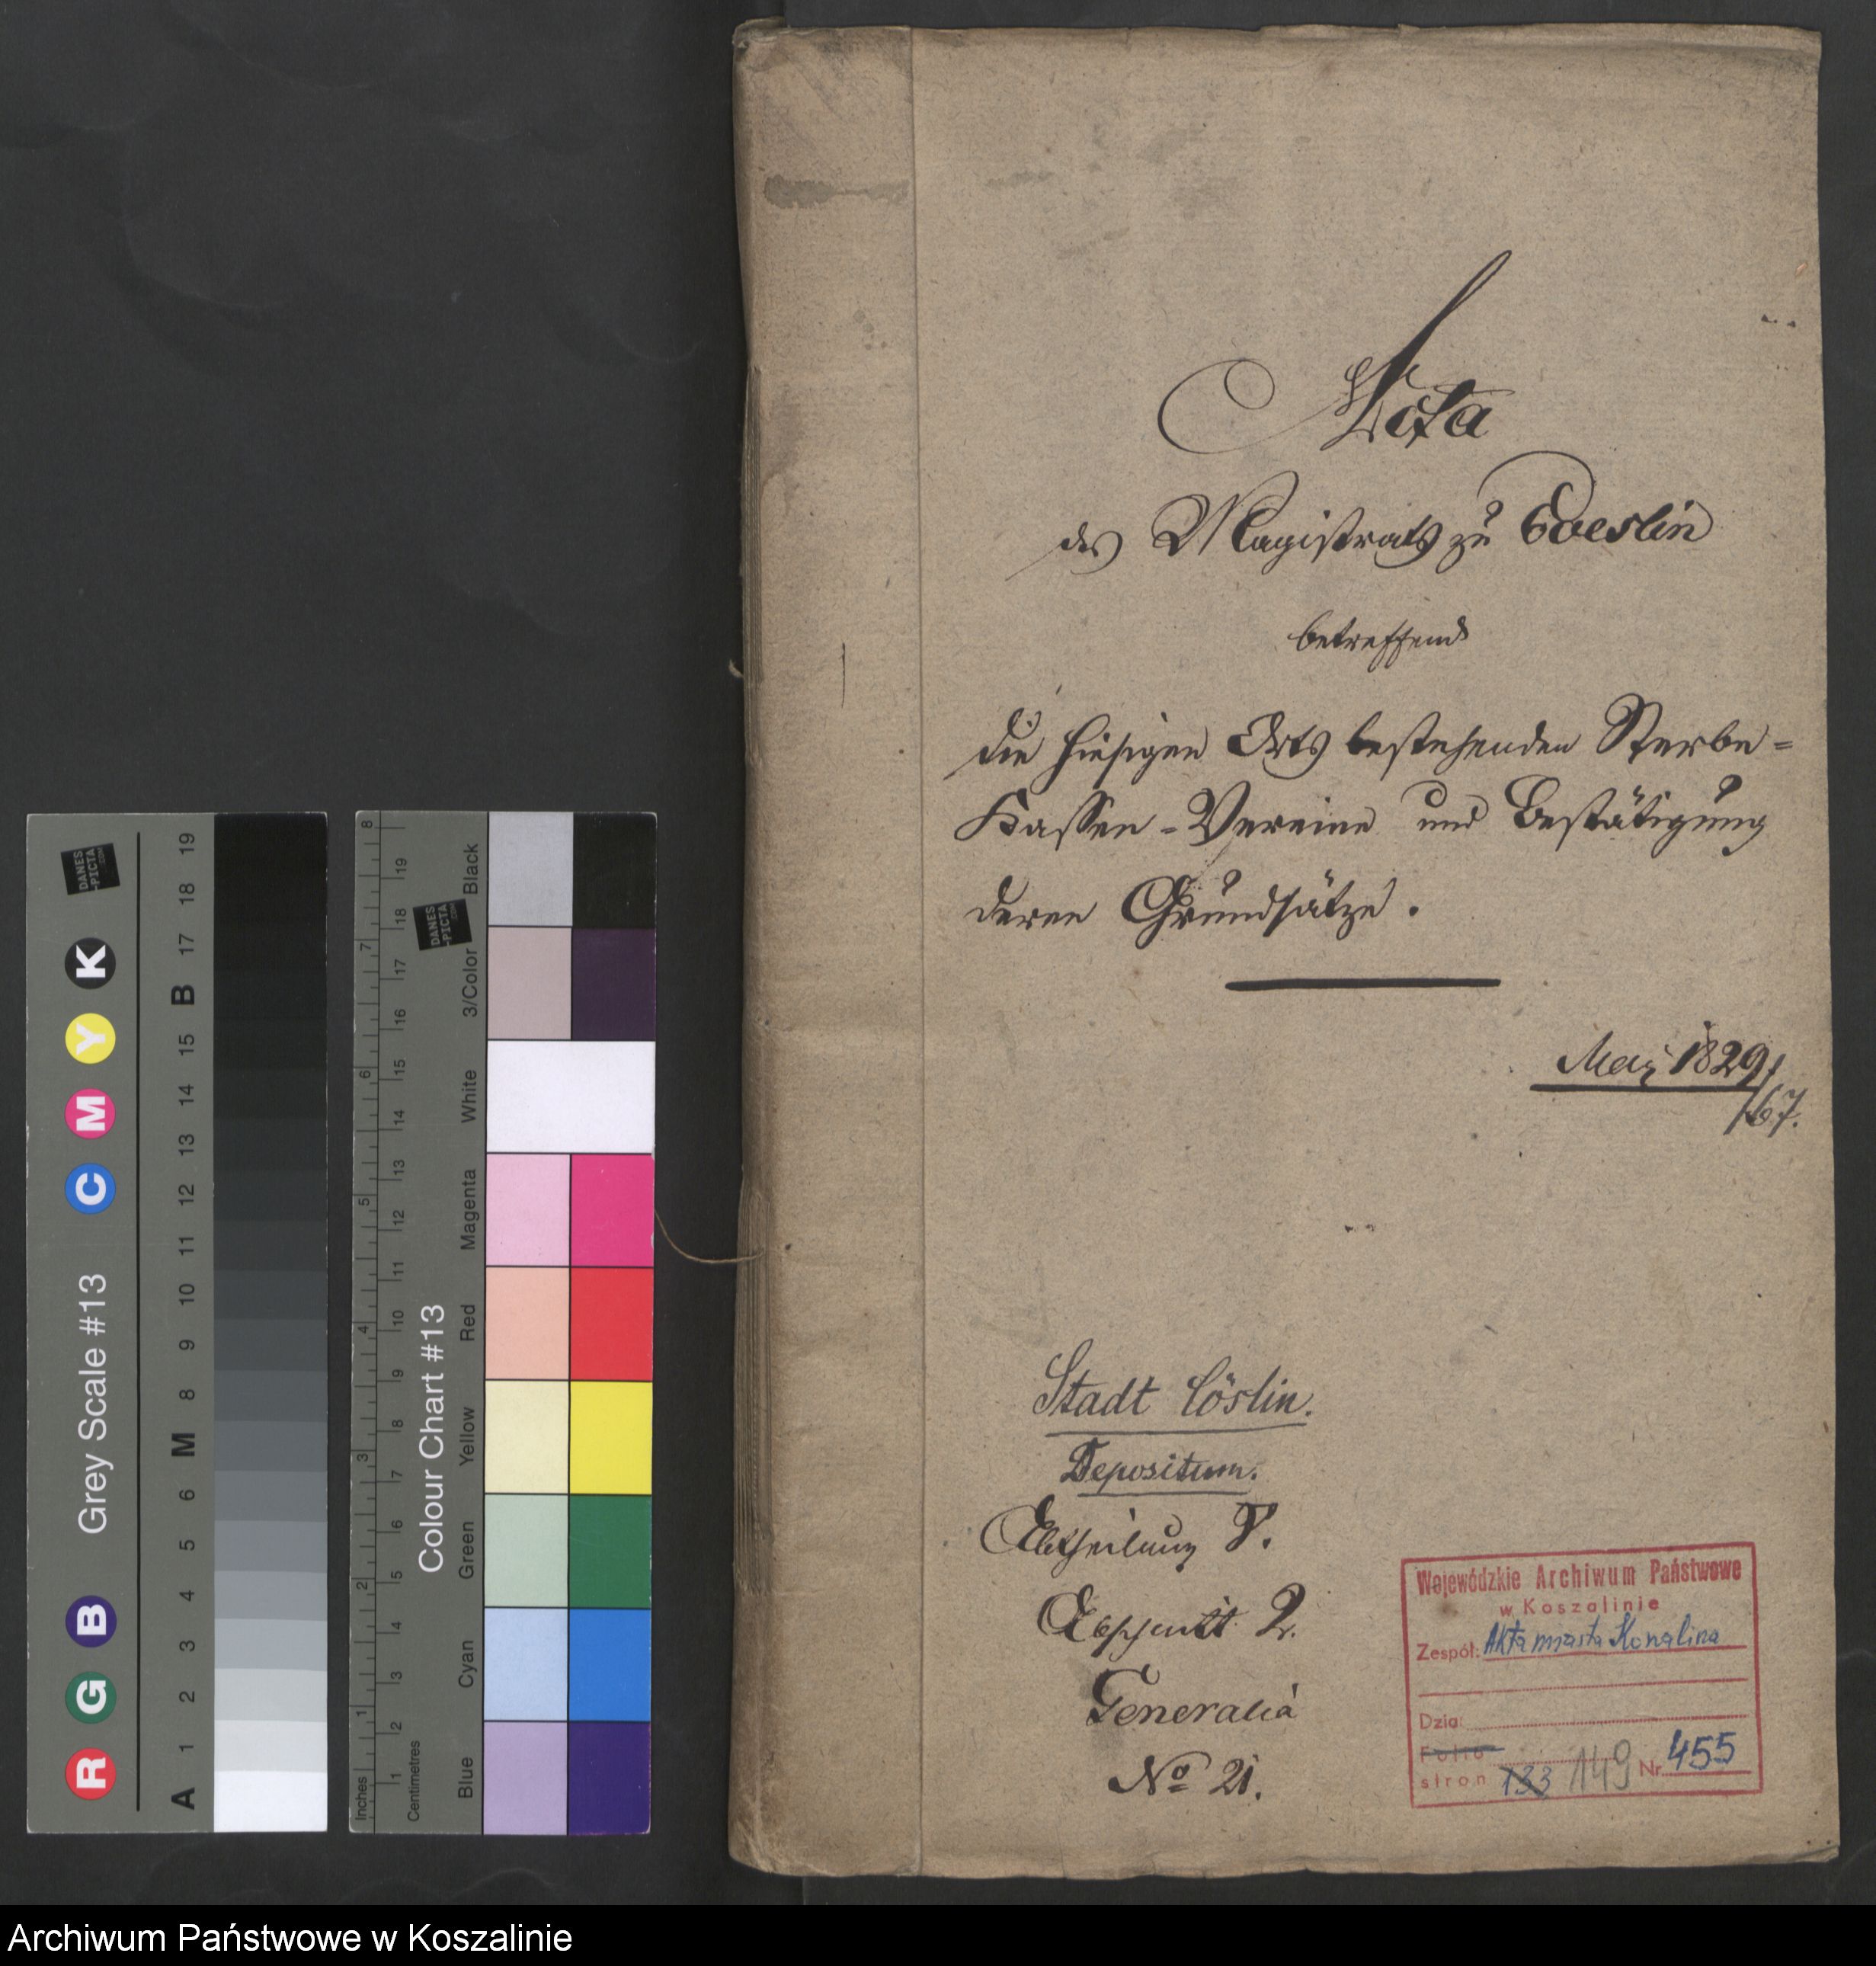 Acta
des Magistrats zu Coeslin
betreffend
die hiesigen Orts bestehenden Sterbe-
Kassen-Vereine und Bestätigung
deren Grundsätze.
May 1829/
/67.
Stadt Cöslin.
Depositum.
Abtheilung V.
Abschnitt 2.
Generalia
No 21.
Wojewódzkie Archiwum Państwowe
w Koszalinie
Zespół: Akta miasta Koszalina
Dział
Folio
stron 133 149 Nr 455
Grey Scale #13
R G B C M Y K
DANES
-PICTA
.COM
A 1 2 3 4 5 6 M 8 9 10 11 12 13 14 15 B 17 18 19
Colour Chart #13
DANES
-PICTA
.COM
Inches 1 2 3 4 5 6 7 8
Centimetres 1 2 3 4 5 6 7 8 9 10 11 12 13 14 15 16 17 18 19
Blue Cyan Green Yellow Red Magenta White 3/Color Black
Archiwum Państwowe w Koszalinie